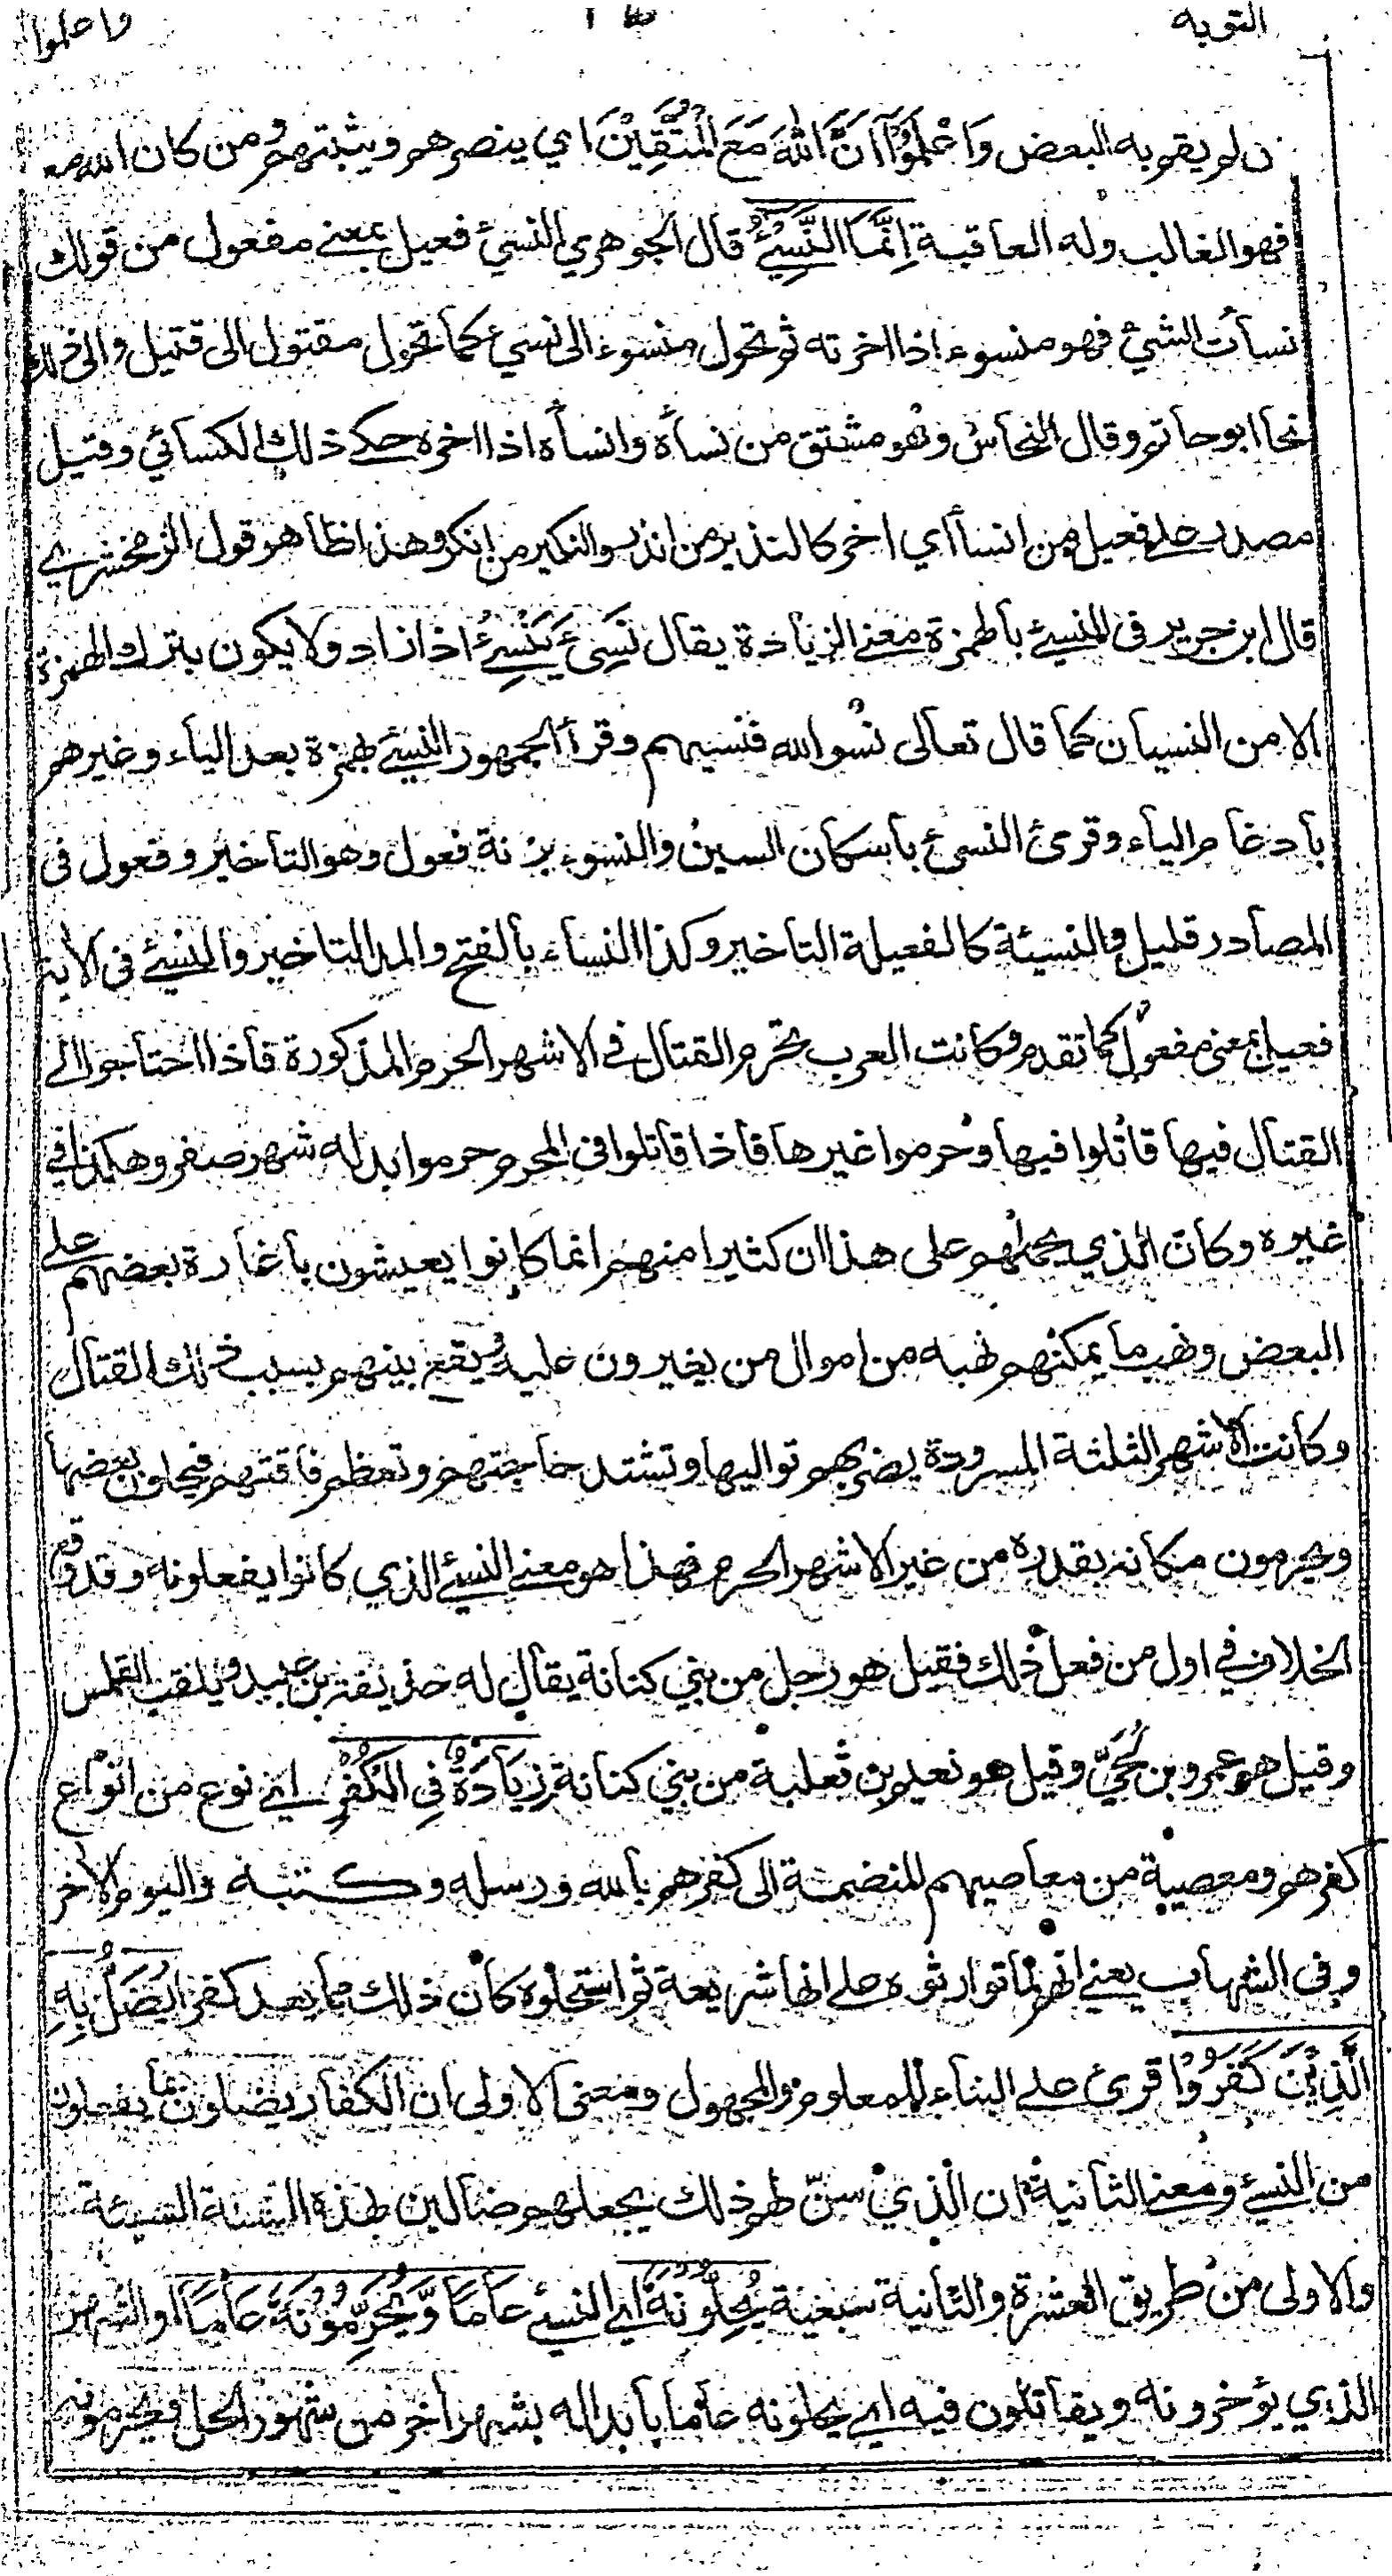 التوبه واعلموا
ن لم يقم به البعض وَاعْلَمُوْٓا اَنَّ اللّٰهَ مَعَ الْمُتَّقِيْنَ اي ينصرهم ويثبتهم ومن كان الله معه
فهو الغالب وله العاقبة اِنَّمَا النَّسِيْٓءُ قال الجوهري النسئ فعيل بمعنى مفعول من قولك
نسأت الشئ فهو منسوء اذا اخرته ثم تحول منسوء الى نسئ كما تحول مقتول الى قتيل والى ذلك
نحا ابو حاتم وقال النحاس وهو مشتق من نسأه وانسأه اذا اخره حكى ذلك الكسائي وقيل
مصدر على فعيل من انسأ اي اخر كالنذير من انذر والنكير من انكر وهذا ظاهر قول الزمخشري
قال ابن جرير في النسئ بالهمزة معنى الزيادة يقال نَسِئَ يَنْسِئُ اذا زاد ولا يكون بترك الهمزة
الا من النسيان كما قال تعالى نسوا الله فنسيهم وقرأ الجمهور النسئ بهمزة بعد الياء وغيرهم
بادغام الياء وقرئ النسئ باسكان السين والنسوء بزنة فعول وهو التاخير وفعول في
المصادر قليل والنسيئة كالفعيلة التاخير وكذا النساء بالفتح والمد التاخير والنسئ في الاية
فعيل بمعنى مفعول كما تقدم وكانت العرب تحرم القتال في الاشهر الحرم المذكورة فاذا احتاجوا الى
القتال فيها قاتلوا فيها وحرموا غيرها فاذا قاتلوا في المحرم حرموا بدله شهر صفر وهكذا في
غيره وكان الذي يحملهم على هذا ان كثيرا منهم انما كانوا يعيشون باغارة بعضهم على
البعض ونهب ما يمكنهم نهبه من اموال من يغيرون عليه ويقع بينهم بسبب ذلك القتال
وكانت الاشهر الثلثة المسرودة يضر بهم تواليها وتشتد حاجتهم وتعظم فاقتهم فيحلون بعضها
ويحرمون مكانه بقدره من غير الاشهر الحرم فهذا هو معنى النسئ الذي كانوا يفعلونه وقد وقع
الخلاف في اول من فعل ذلك فقيل هو رجل من بني كنانة يقال له حذيفة بن عبيد ويلقب القلمس
وقيل هو عمرو بن لُحَيّ وقيل هو نعيم بن ثعلبة من بني كنانة زِيَادَةٌ فِي الْكُفْرِ اي نوع من انواع
كفرهم ومعصية من معاصيهم المنضمة الى كفرهم بالله ورسله وكتبه واليوم الاخر
وفي الشهاب يعني انهم لما توارثوه على انها شريعة ثم استحلوه كان ذلك مما يعد كفرا يُضَلُّ بِهِ
الَّذِيْنَ كَفَرُوْا قرئ على البناء للمعلوم والمجهول ومعنى الاولى ان الكفار يضلون بما يفعلون
من النسئ ومعنى الثانية ان الذي سنّ لهم ذلك يجعلهم ضالين بهذه السنة السيئة
والاولى من طريق العشرة والثانية سبعية يُحِلُّوْنَهٗ اي النسئ عَامًا وَّيُحَرِّمُوْنَهٗ عَامًا او الشهر
الذي يؤخرونه ويقاتلون فيه اي يحلونه عاما بابداله بشهر اخر من شهور الحل ويحرمونه